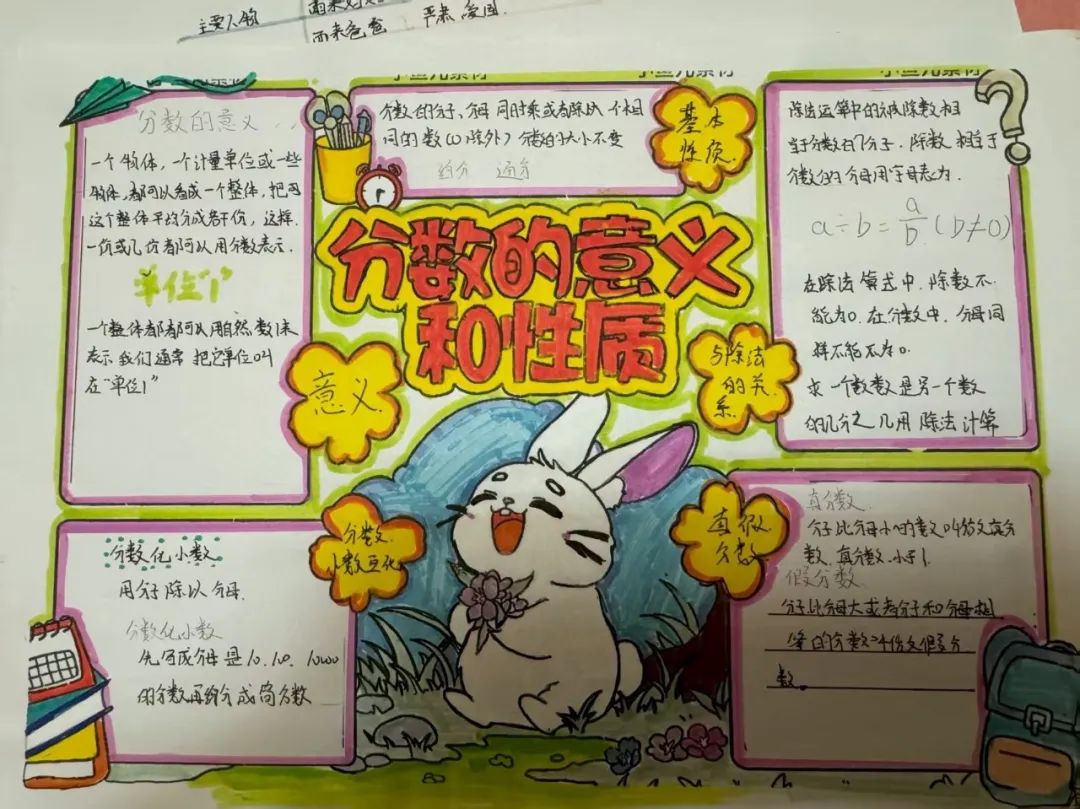 主要人物
严肃、爱国.
雨来爸爸
分数的意义...
一个物体，一个计量单位或一些
物体，都可以看成一个整体，把
这个整体平均分成若干份，这样
一份或几份都可以用分数表示.
单位"1"
一个整体都都可以用自然数1来
表示我们通常把它单位叫
在"单位1"
分数的分子、分母同时乘或者除以一个相
同的数(0除外)分数的大小不变
约分 通分
基本
性质.
除法运算中的被除数相
当于分数的分子.除数相当于
分数的分母用字母表为.
a÷b=a/b(b≠0)
在除法算式中.除数不
能为0.在分数中.分母同
样不能不为0.
求一个数数是另一个数
的几分之几用除法计算
分数的意义
和性质
意义
与除法
的关
系.
分数
小数互化
真假
分数
分数化小数
用分子除以分母.
分数化小数
先写成分母是10.100.1000
的分数再约分成简分数
真分数.
分子比分母小的数叫做真分
数.真分数.小于1.
假分数
分子比分母大或者分子和分母相
等的分数叫做假分
数。